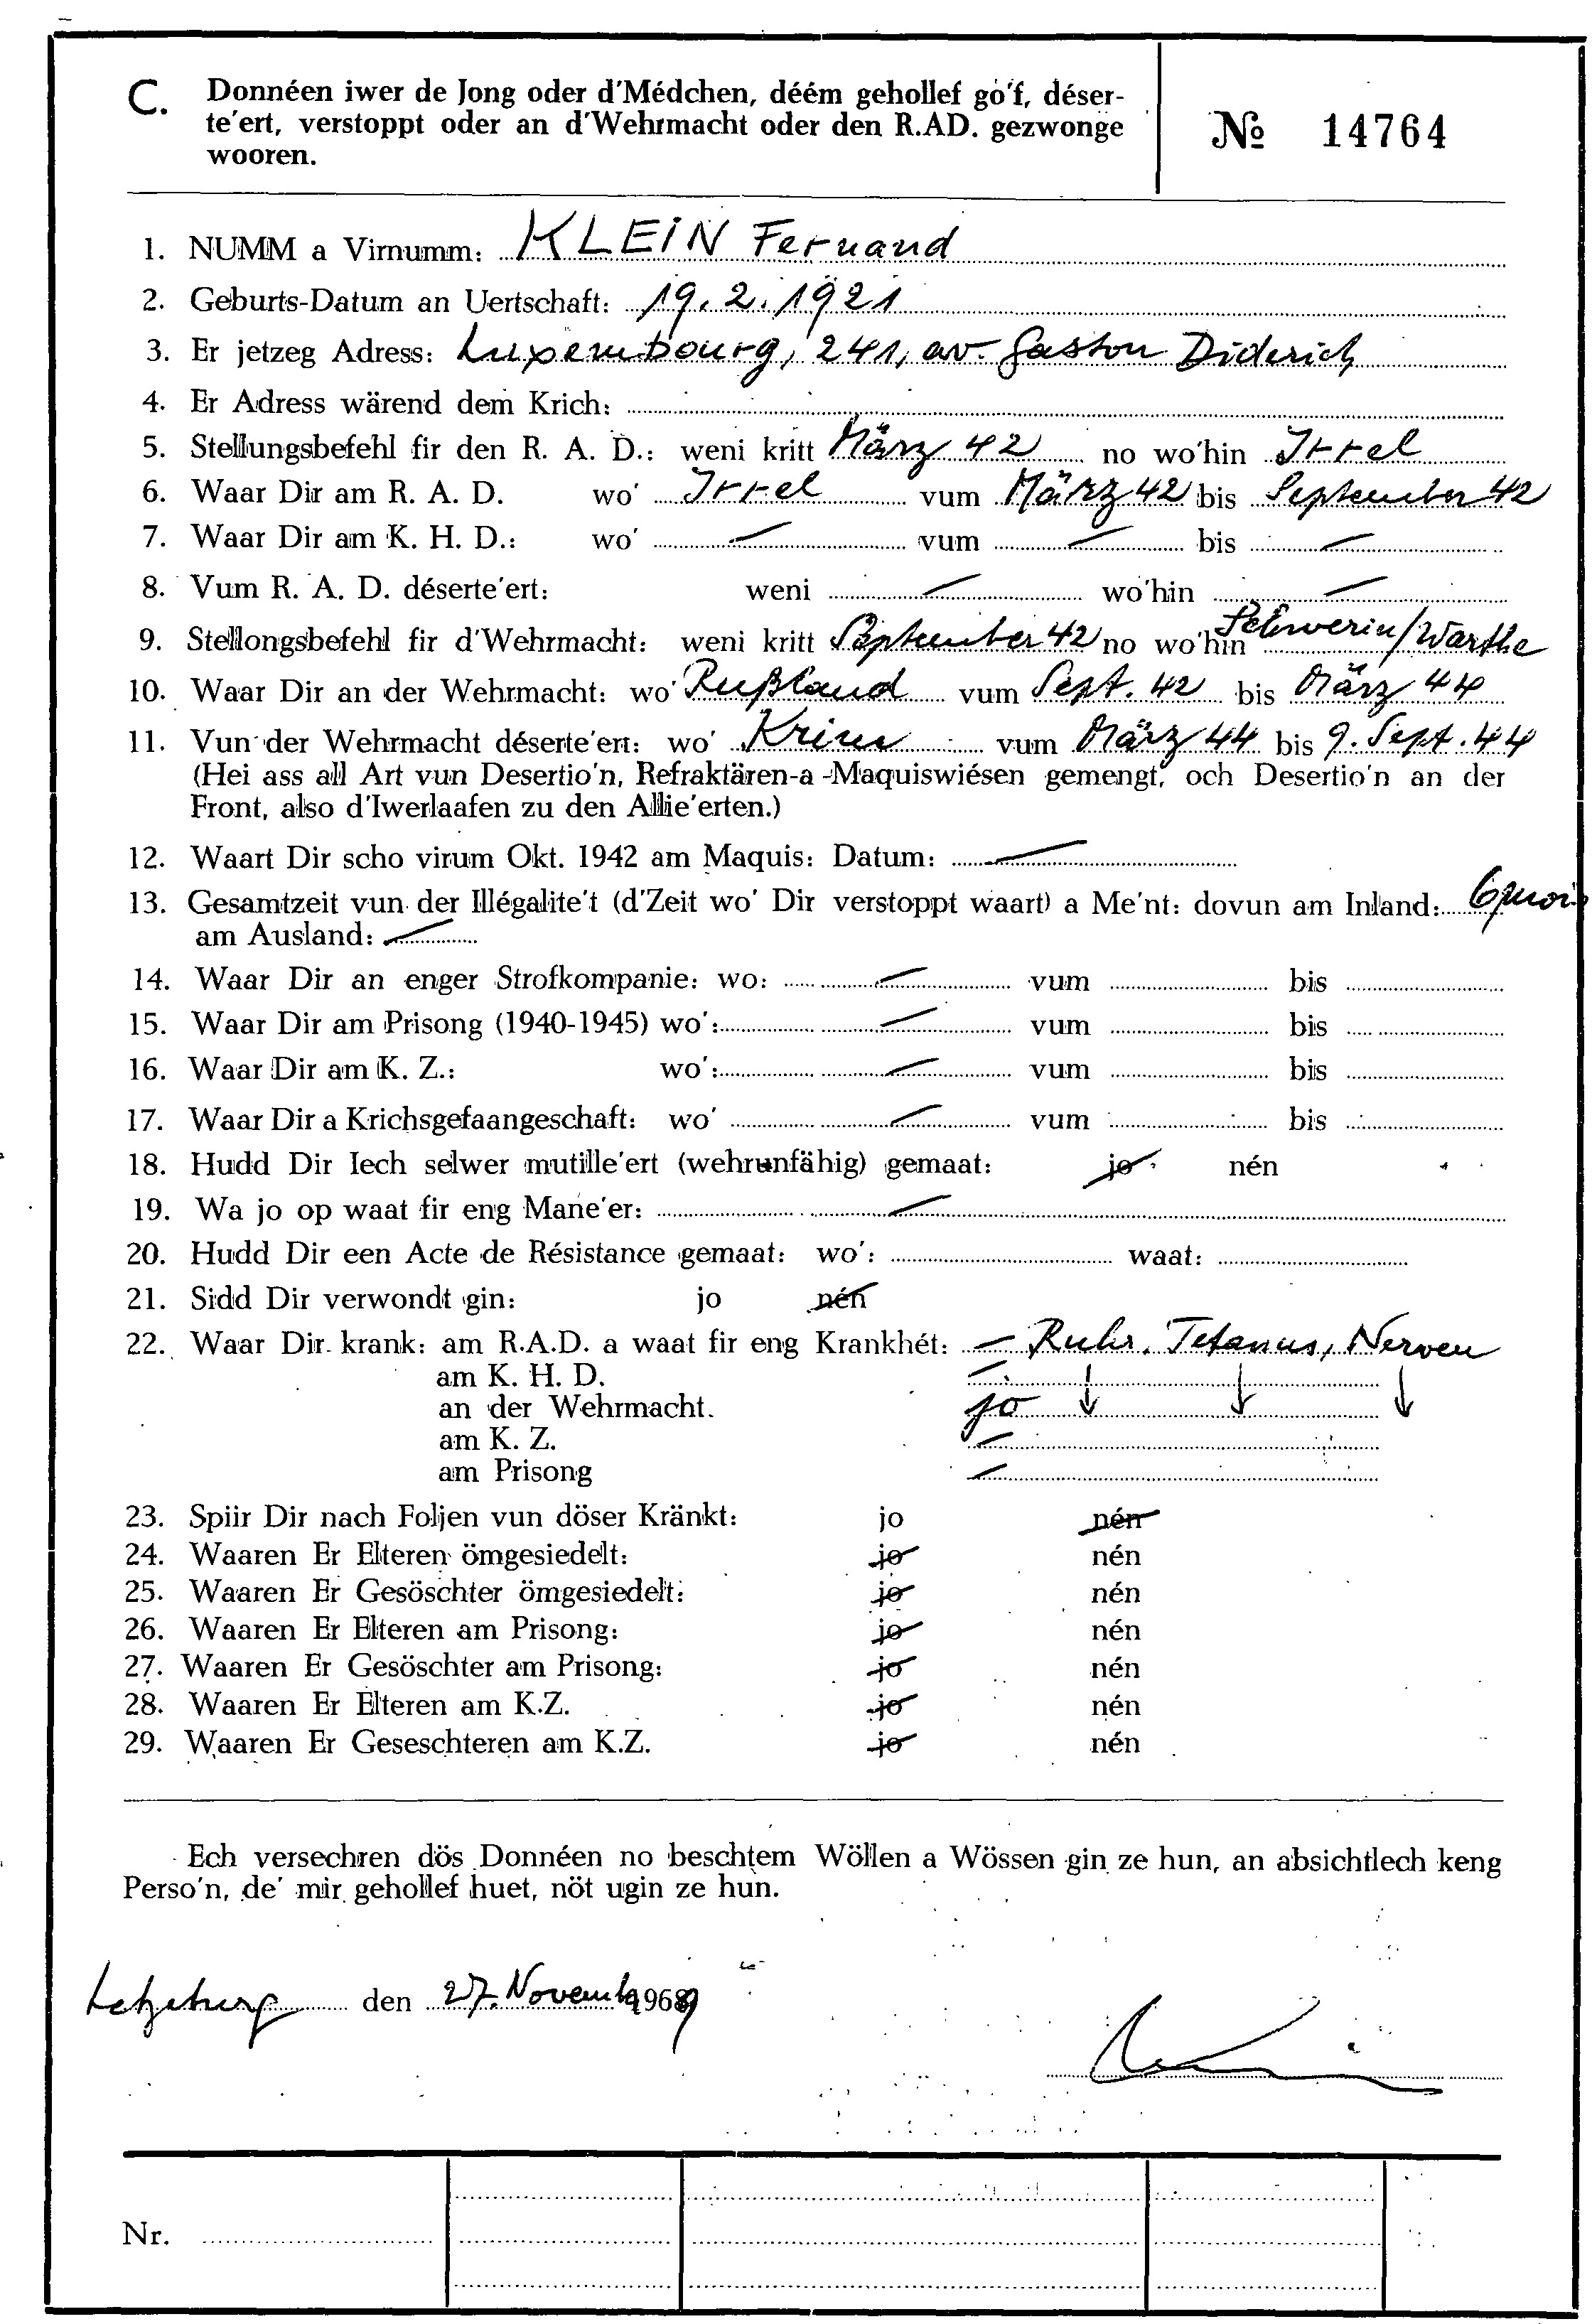 C. Donnéen iwer de Jong oder d'Médchen, déém gehollef go'f, déser-
te'ert, verstoppt oder an d'Wehrmacht oder den R.AD. gezwonge
wooren.
№ 14764
1. NUMM a Virnumm: KLEIN Fernand
2. Geburts-Datum an Uertschaft: 19.2.1921
3. Er jetzeg Adress: Luxembourg, 241, av. Gaston Diderich
4. Er Adress wärend dem Krich:
5. Stellungsbefehl fir den R. A. D.: weni kritt März 42 no wo'hin Irrel
6. Waar Dir am R. A. D. wo' Irrel vum März 42 bis September 42
7. Waar Dir am K. H. D.: wo' — vum — bis —
8. Vum R. A. D. déserte'ert: weni — wo'hin —
9. Stellongsbefehl fir d'Wehrmacht: weni kritt September 42 no wo'hin Schwerin/Warthe
10. Waar Dir an der Wehrmacht: wo' Rußland vum Sept. 42 bis März 44
11. Vun der Wehrmacht déserte'ert: wo' Krim vum März 44 bis 9. Sept. 44
(Hei ass all Art vun Desertio'n, Refraktären-a -Maquiswiésen gemengt, och Desertio'n an der
Front, also d'Iwerlaafen zu den Allie'erten.)
12. Waart Dir scho virum Okt. 1942 am Maquis: Datum: —
13. Gesamtzeit vun der Illégalite't (d'Zeit wo' Dir verstoppt waart) a Me'nt: dovun am Inland: 6 mois
am Ausland: —
14. Waar Dir an enger Strofkompanie: wo: — vum bis
15. Waar Dir am Prisong (1940-1945) wo': — vum bis
16. Waar Dir am K. Z.: wo': — vum bis
17. Waar Dir a Krichsgefaangeschaft: wo' — vum bis
18. Hudd Dir Iech selwer mutille'ert (wehrunfähig) gemaat: jo nén
19. Wa jo op waat fir eng Mane'er: —
20. Hudd Dir een Acte de Résistance gemaat: wo': waat:
21. Sidd Dir verwondt gin: jo nén
22. Waar Dir krank: am R.A.D. a waat fir eng Krankhét: — Ruhr, Tetanus, Nerven
am K. H. D. — ↓ ↓ ↓
an der Wehrmacht. jo
am K. Z. —
am Prisong —
23. Spiir Dir nach Foljen vun döser Kränkt: jo nén
24. Waaren Er Elteren ömgesiedelt: jo nén
25. Waaren Er Gesöschter ömgesiedelt: jo nén
26. Waaren Er Elteren am Prisong: jo nén
27. Waaren Er Gesöschter am Prisong: jo nén
28. Waaren Er Elteren am K.Z. jo nén
29. Waaren Er Geseschteren am K.Z. jo nén
Ech versechren dös Donnéen no beschtem Wöllen a Wössen gin ze hun, an absichtlech keng
Perso'n, de' mir gehollef huet, nöt ugin ze hun.
Letzeburg den 27. November 1969
Nr.